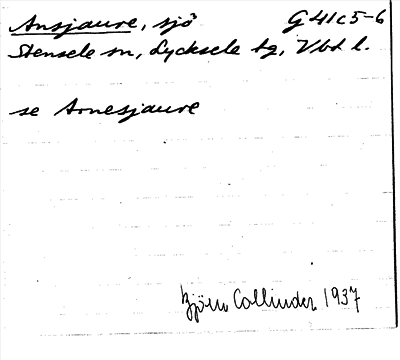 Ansjaure, sjö G41c5-6
Stensele sn, Lycksele tg, Vbt l.
se Arnesjaure
Björn Collinder 1937